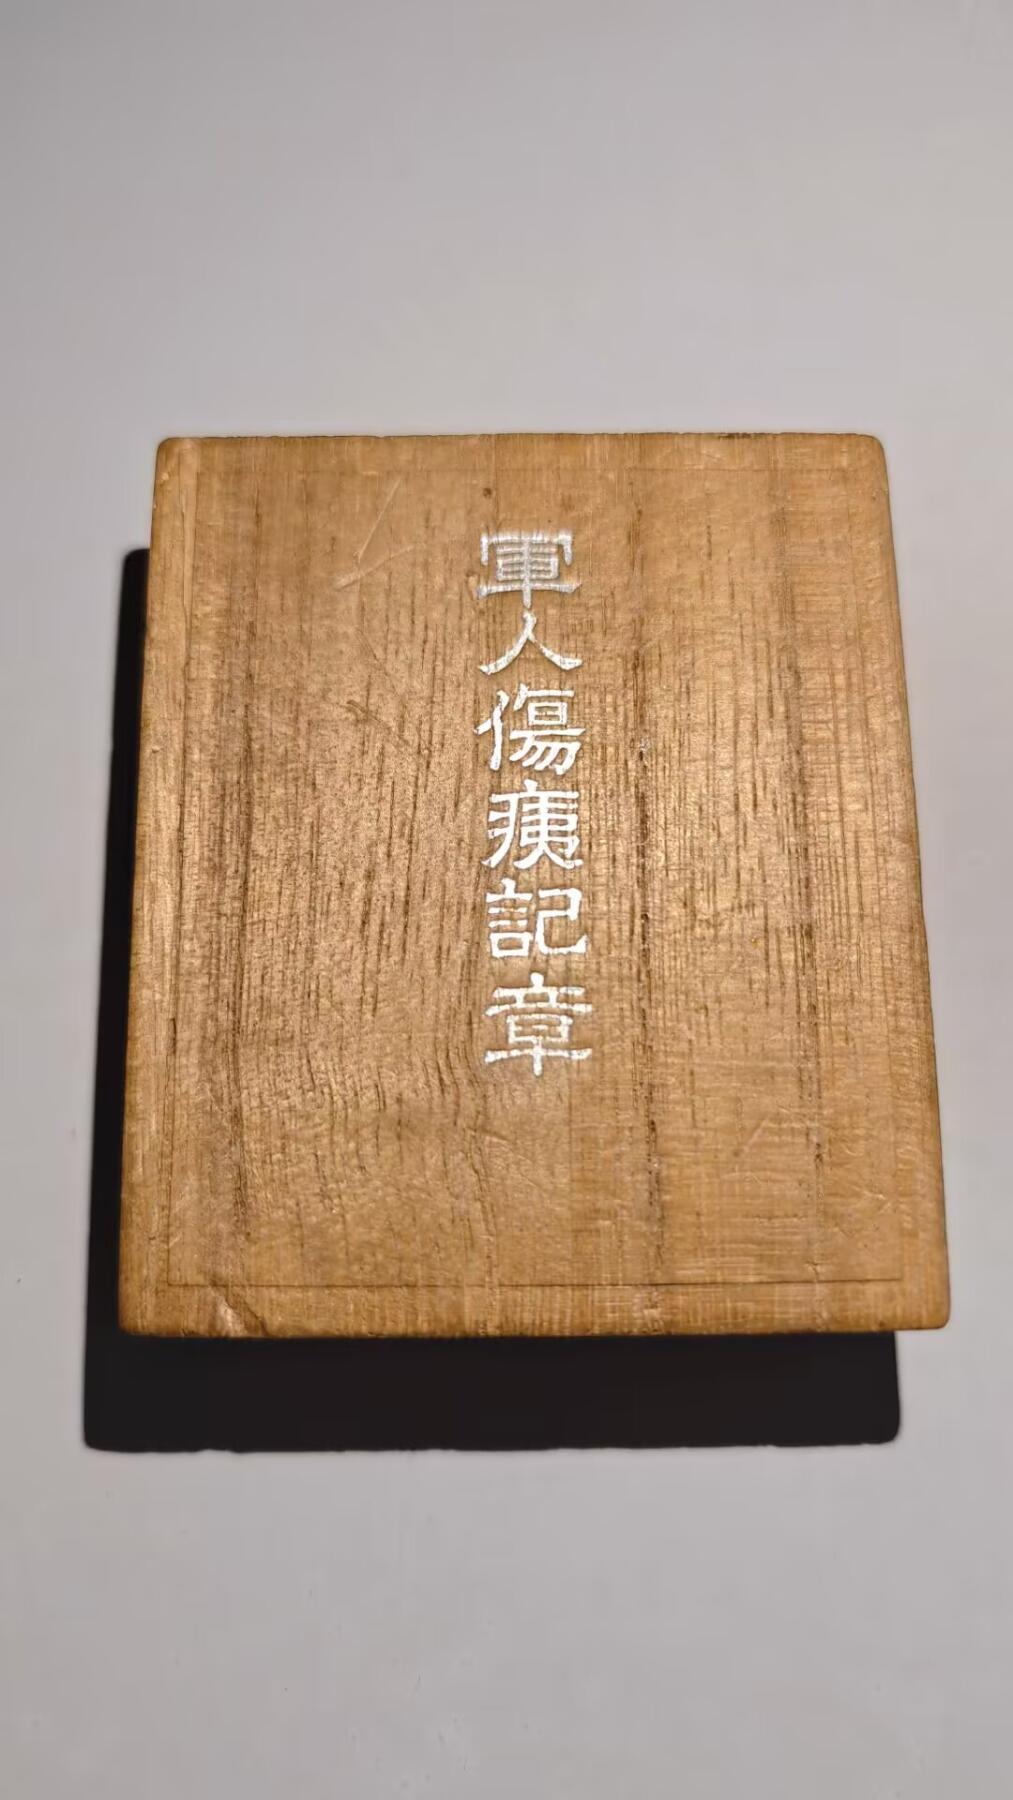 軍人傷痍記章